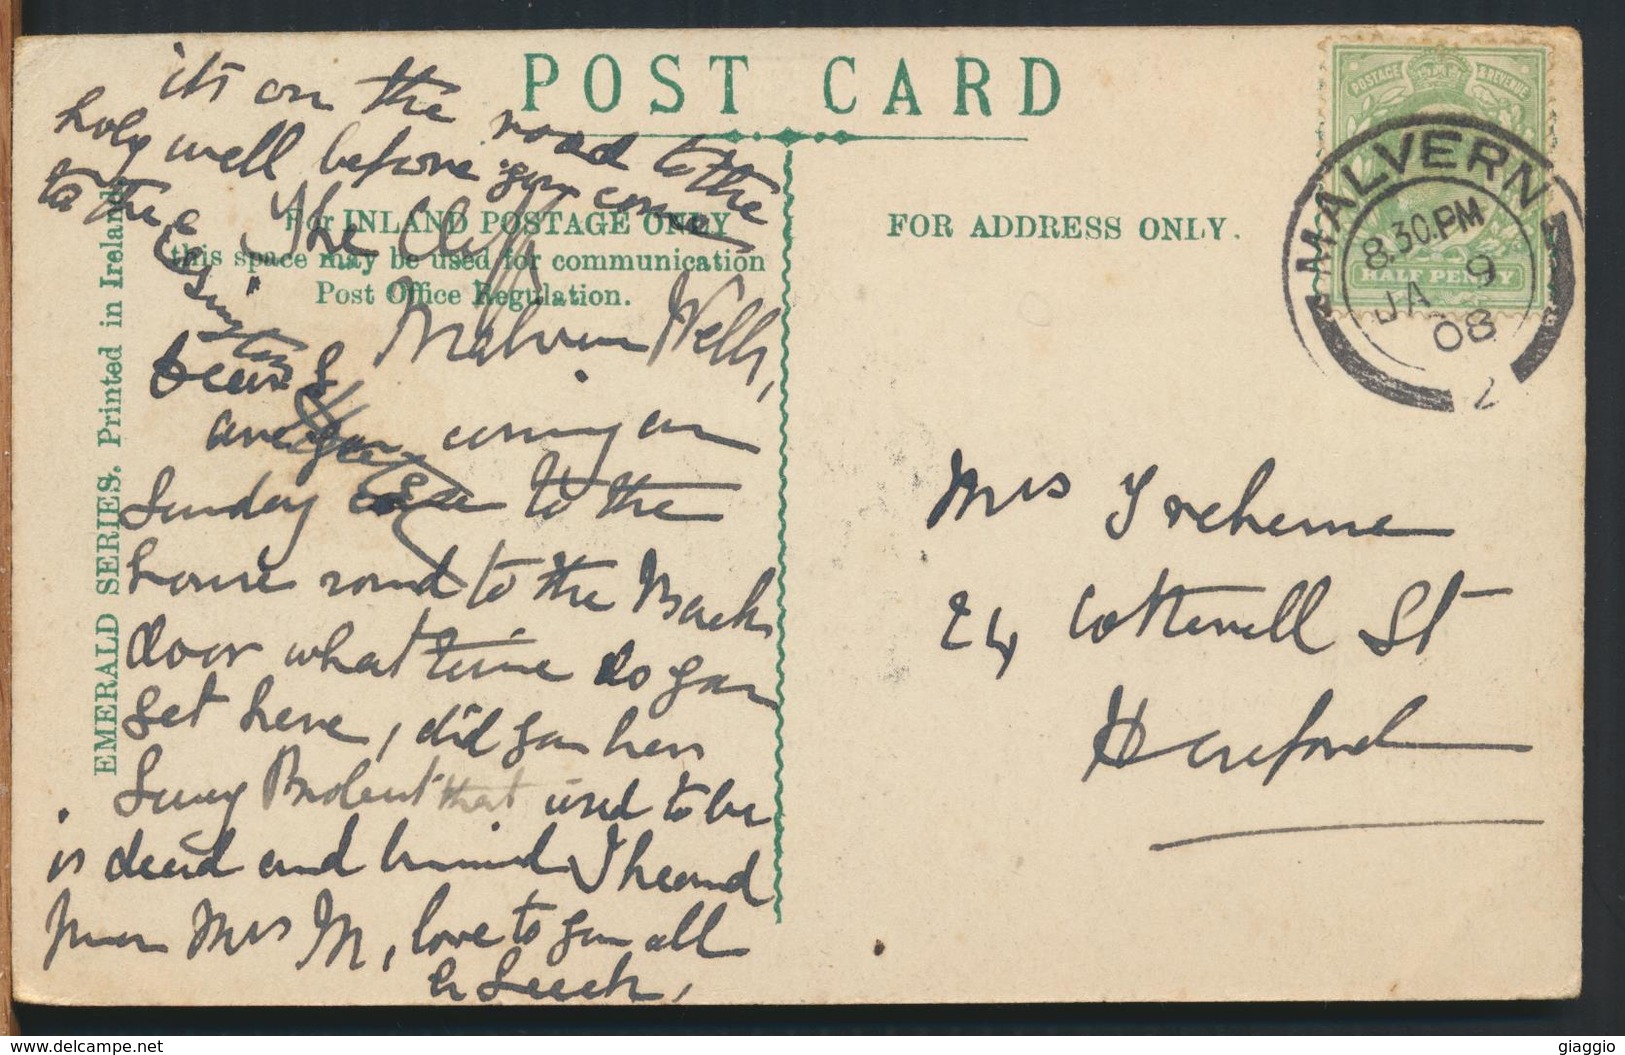 POST CARD
its on the road to the
holy well before you come
to the
For INLAND POSTAGE ONLY
this space may be used for communication
Post Office Regulation.
EMERALD SERIES. Printed in Ireland.
The Cliff
Malvern Wells,
Dear
are you coming on
Sunday come to the
house round to the Back
door what time do you
get here, did you hear
Lucy that used to be
is dead and buried I heard
from Mrs M, love to you all
FOR ADDRESS ONLY.
POSTAGE & REVENUE
HALF PENNY
MALVERN
8.30.PM
JA 9
08
2
Mrs Treherne
24 Cotterell St
Hereford
www.delcampe.net
giaggio